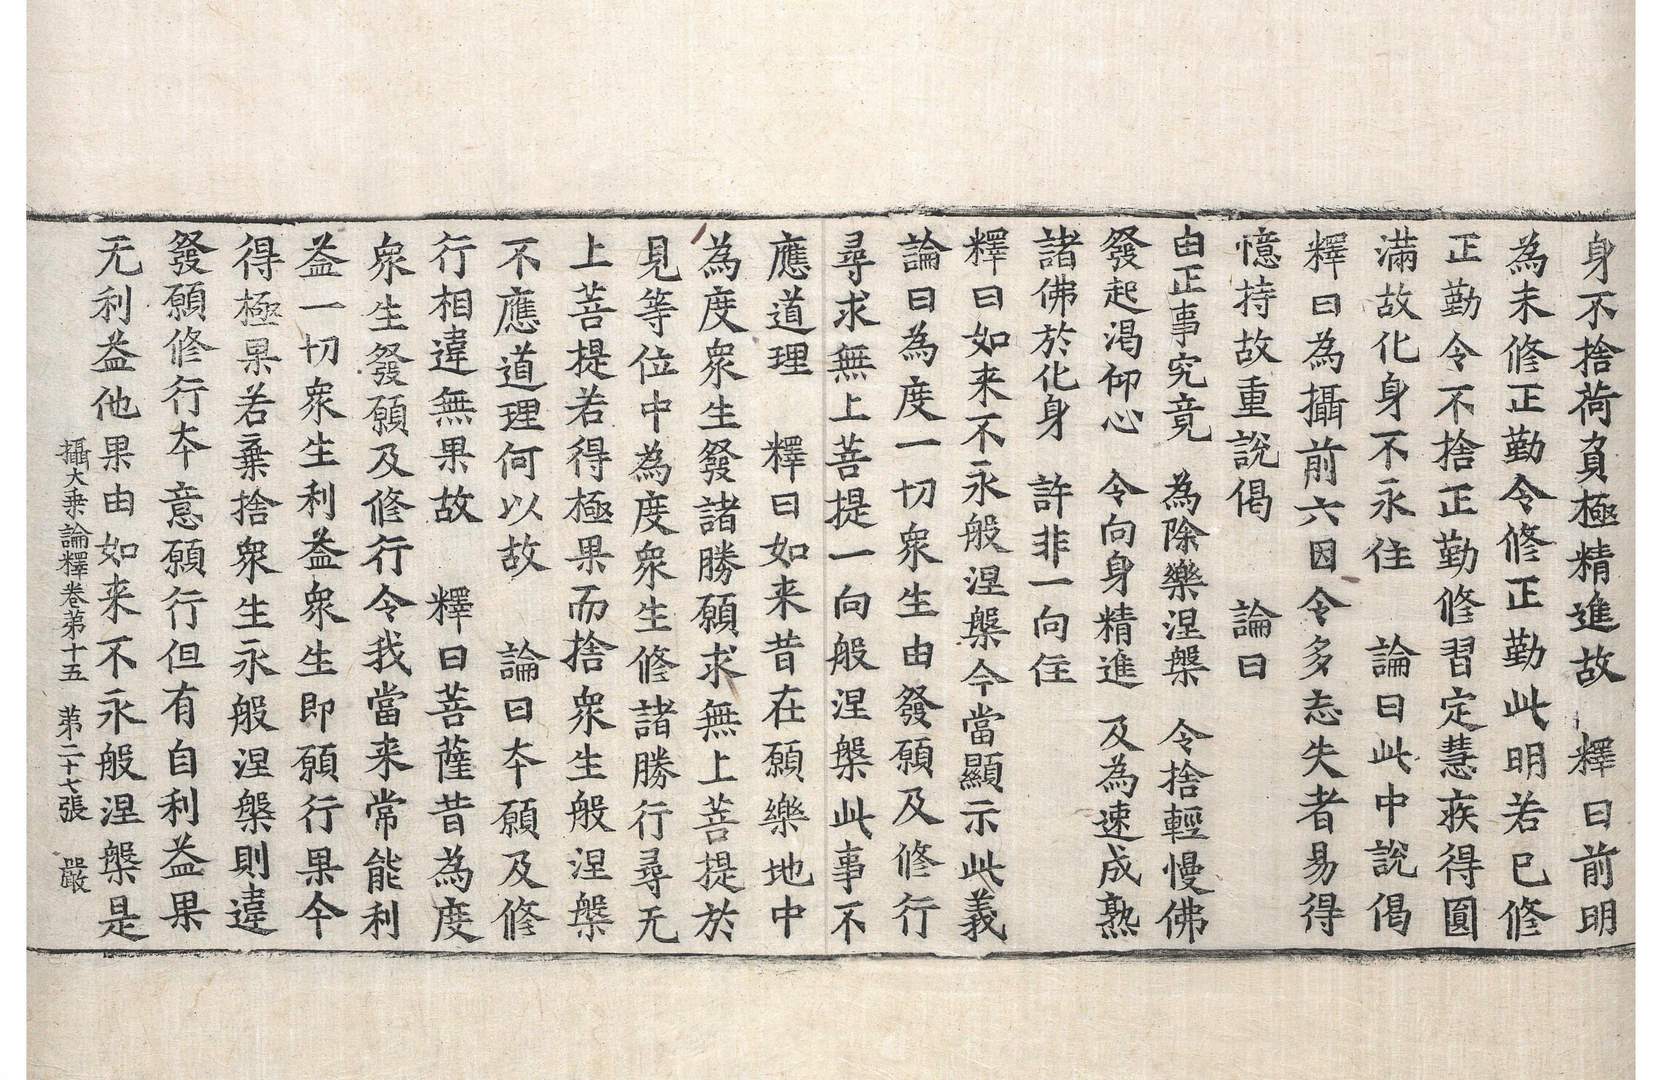 身不捨荷負極精進故　釋曰前明
為未修正勤令修正勤此明若已修
正勤令不捨正勤修習定慧疾得圓
滿故化身不永住　論曰此中說偈
釋曰為攝前六因令多忘失者易得
憶持故重說偈　論曰
由正事究竟　為除樂涅槃　令捨輕慢佛
發起渴仰心　令向身精進　及為速成熟
諸佛於化身　許非一向住
釋曰如来不永般涅槃今當顯示此義
論曰為度一切衆生由發願及修行
尋求無上菩提一向般涅槃此事不
應道理　釋曰如来昔在願樂地中
為度衆生發諸勝願求無上菩提於
見等位中為度衆生修諸勝行尋无
上菩提若得極果而捨衆生般涅槃
不應道理何以故　論曰夲願及修
行相違無果故　釋曰菩薩昔為度
衆生發願及修行令我當来常能利
益一切衆生利益衆生即願行果今
得極果若棄捨衆生永般涅槃則違
發願修行夲意願行但有自利益果
无利益他果由如来不永般涅槃是
攝大乗論釋卷苐十五　苐二十七張　嚴